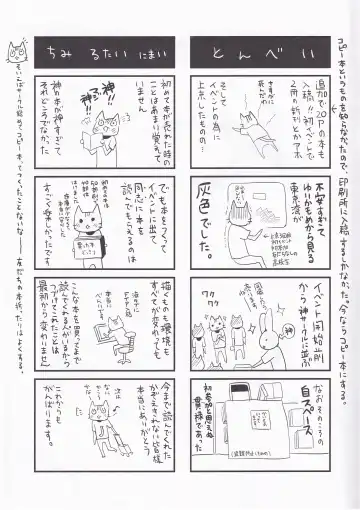 コピー本というものを知らなかったので印刷所に入稿するしかなかった。今ならコピー本にする。
いべんと
追加で20P
入稿!!初イベントで
2冊の新刊とかアホ
さすがに
死んだわ
そして
イベントの為に
上京したものの…
不安すぎて
ゆりかもめから見る
東京湾が
灰色でした。
イベント開始直前
から神サークルに並ぶ
神
ワクワク
ワクワク
なおそのころの
自スペース
初参加と思えぬ
貫禄であった
ちみ るたい にまい
初めて本が売れた時の
ことはあまり覚えて
いません
神…
神の本が神すぎて
それどころでなかった
でも本をつくって
イベントに出て
同志に本を
読んでもらえるのは
すごく楽しかったです
描くものも環境も
すべてが変わっても
こんな本を買ってまで
読んでくれる人がいるから
コワくないってことは
最初から変わりません
今まで読んでくれた
かぞえきれない皆様
本当にありがとう
これからも
がんばります。
そういえばサークル始めてコピー本ってつくったことないな——友だちの本折ったりはよくする。